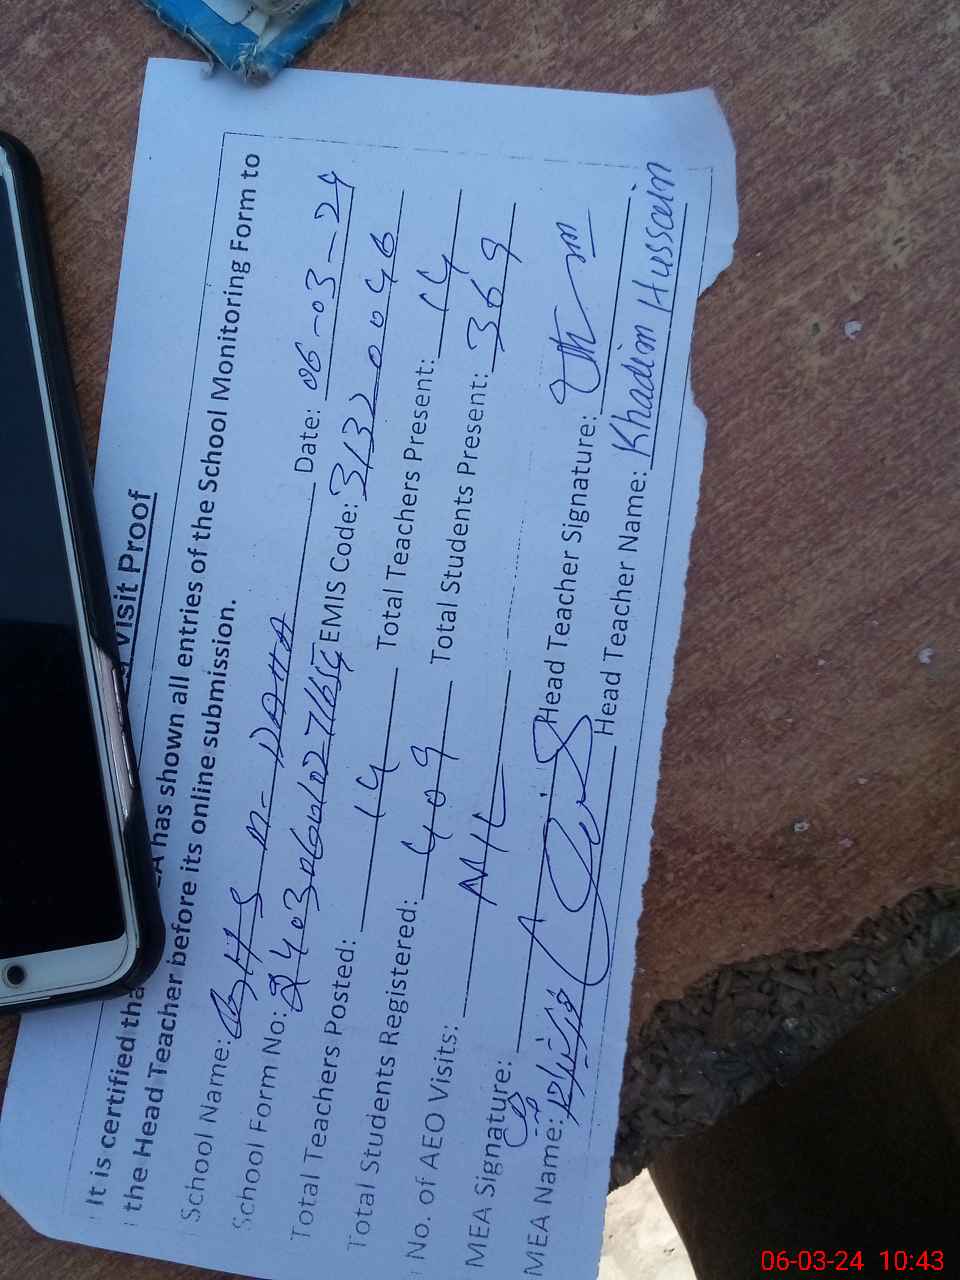 Visit Proof
It is certified tha EA has shown all entries of the School Monitoring Form to
the Head Teacher before its online submission.
School Name: GHS Date: 06-03-24
School Form No: EMIS Code: 31320046
Total Teachers Posted: 14 Total Teachers Present: 14
Total Students Registered: 409 Total Students Present: 369
No. of AEO Visits: NIL
MEA Signature: Head Teacher Signature:
MEA Name: Head Teacher Name: Khadim Hussain
06-03-24 10:43